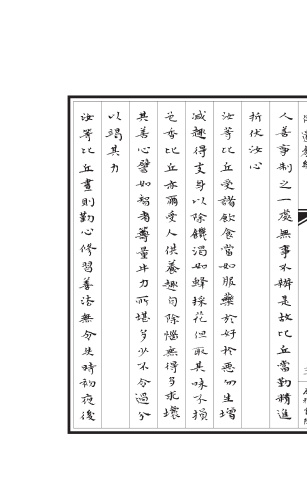 人善事制之一處無事不辦是故比丘當勤精進
折伏汝心
汝等比丘受諸飲食當如服藥於好於惡勿生增
減趣得支身以除饑渴如蜂採花但取其味不損
色香比丘亦爾受人供養趣自除惱無得多求壞
其善心譬如智者籌量牛力所堪多少不令過分
以竭其力
汝等比丘晝則勤心修習善法無令失時初夜後